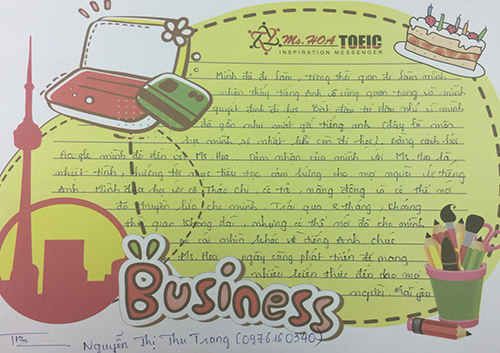 Ms.HOA TOEIC
INSPIRATION MESSENGER
Mình đã đi làm, trong thời gian đi làm mình
nhận thấy tiếng Anh vô cùng quan trọng và mình
quyết định đi học. Bắt đầu từ đâu khi mình
đã gần như mất gốc tiếng anh (đây là môn
học mình sợ nhất khi còn đi học). Bằng cách hỏi
Google mình đã đến với Ms Hoa, cảm nhận của mình với Ms Hoa là
nhiệt tình, hướng tới mục tiêu tạo cảm hứng cho mọi người với tiếng
Anh. Mình đã học với cô Thảo chi, cô trẻ, năng động và có thể nói
đã truyền lửa cho mình. Trải qua 2 tháng, khoảng
thời gian không dài, nhưng có thể nói đã cho mình
có cái nhìn khác về tiếng Anh. Chúc
Ms Hoa ngày càng phát triển để mang
nhiều kiến thức đến cho mọi
người. Mãi yêu
Business
Nguyễn Thị Thu Trang (0976160340)